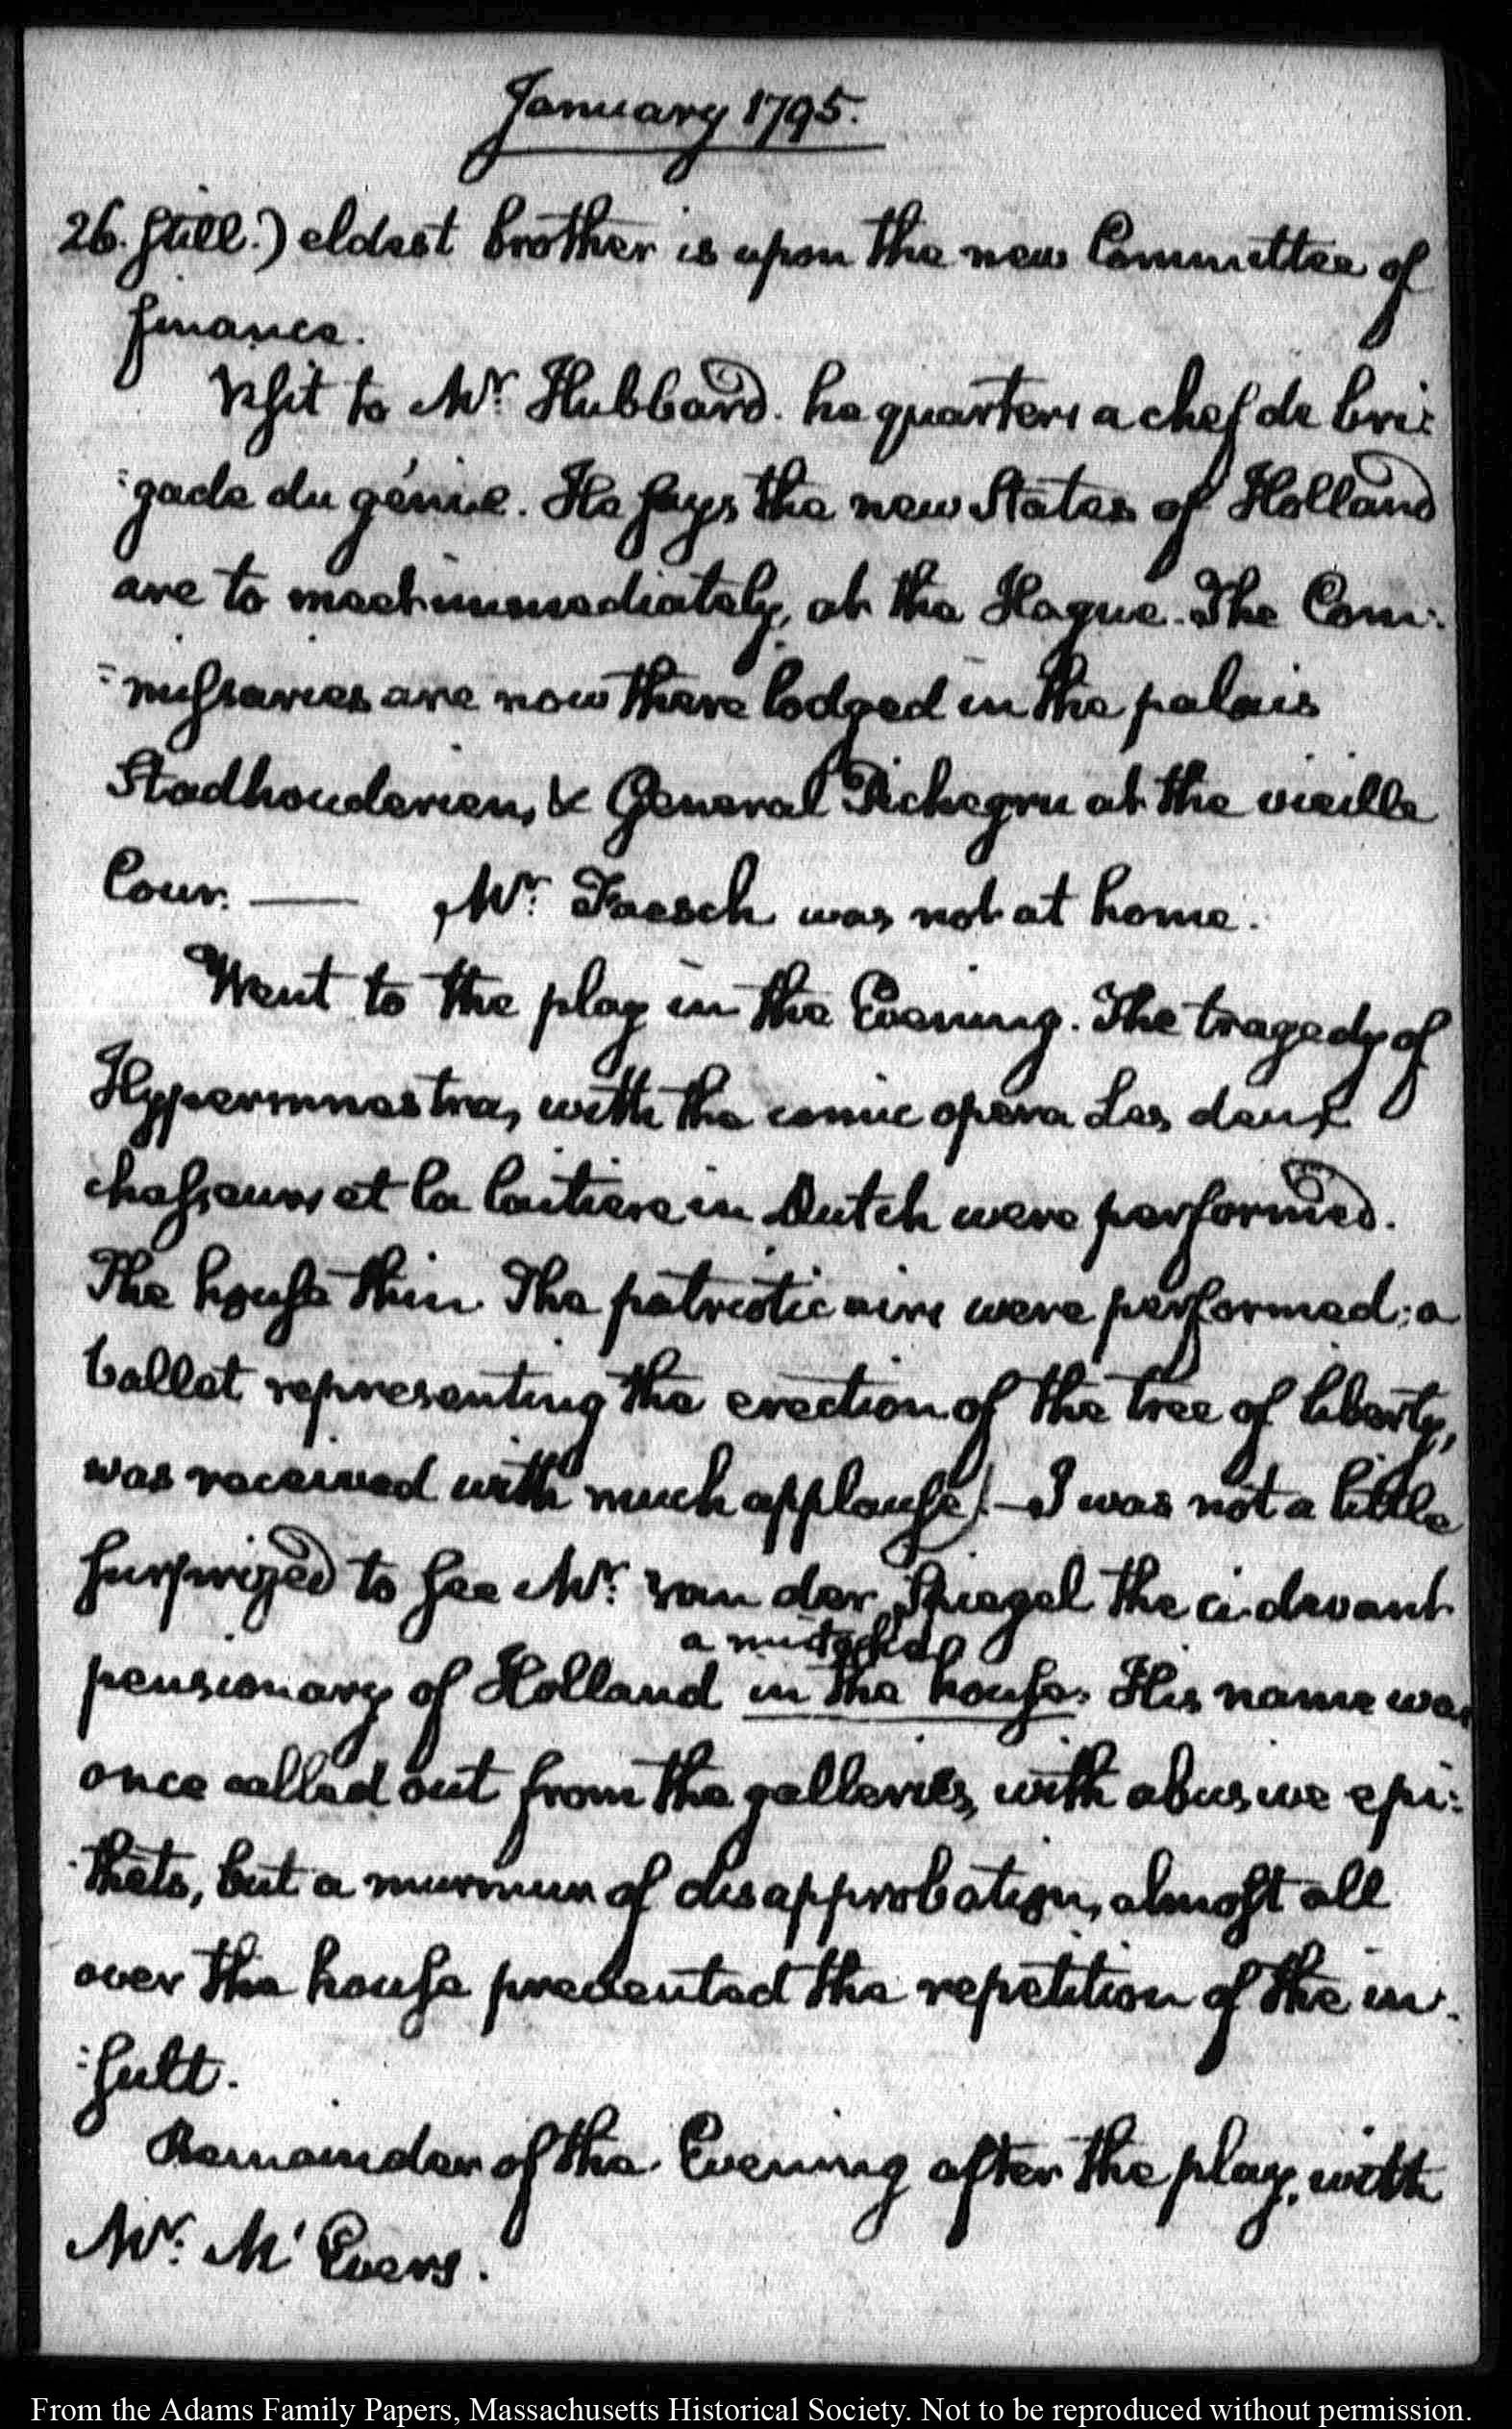 January 1795.
26. still.) eldest brother is upon the new Committee of
finance.
Visit to Mr. Hubbard. he quarters a chef de bri:
:gade du génie. He says the new States of Holland
are to meet immediately, at the Hague. The Com:
:missaries are now there lodged in the palais
Stadhouderien, & General Pichegru at the vieille
Cour. — Mr. Faesch was not at home.
Went to the play in the Evening. The tragedy of
Hypermnestra, with the comic opera Les deux
chasseurs et la laitiere in Dutch were performed.
The house thin. The patriotic airs were performed; a
ballet representing the erection of the tree of liberty,
was received with much applause.— I was not a little
surprized to see Mr. van der Spiegel the ci-devant
a mistake
pensionary of Holland in the house. His name was
once called out from the galleries, with abusive epi:
:thets, but a murmur of disapprobation, almost all
over the house prevented the repetition of the in:
:sult.
Remainder of the Evening after the play, with
Mr. M'Evers.
From the Adams Family Papers, Massachusetts Historical Society. Not to be reproduced without permission.